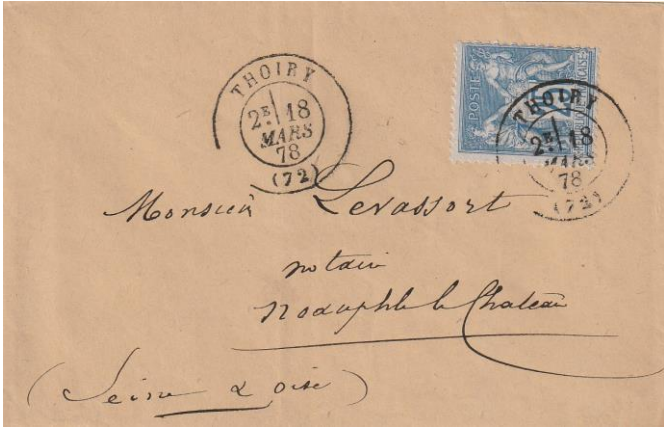 THOIRY
2E 18
MARS
78
(72)
POSTE
THOIRY
2E 18
MARS
78
(72)
Monsieur Levassort
notaire
Neauphle le Chateau
(Seine & Oise)